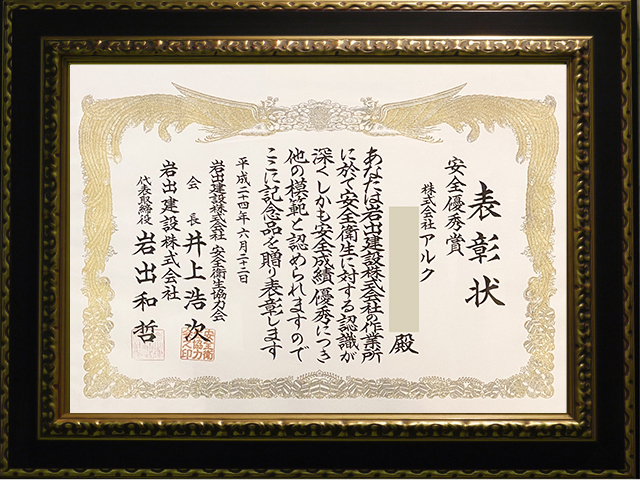 表彰状
安全優秀賞
株式会社アルク
殿
あなたは岩出建設株式会社の作業所
に於て安全衛生に対する認識が
深くしかも安全成績優秀につき
他の模範と認められますので
ここに記念品を贈り表彰します
平成二十四年六月二十二日
岩出建設株式会社 安全衛生協力会
会長 井上浩次
岩出建設株式会社
代表取締役 岩出和哲